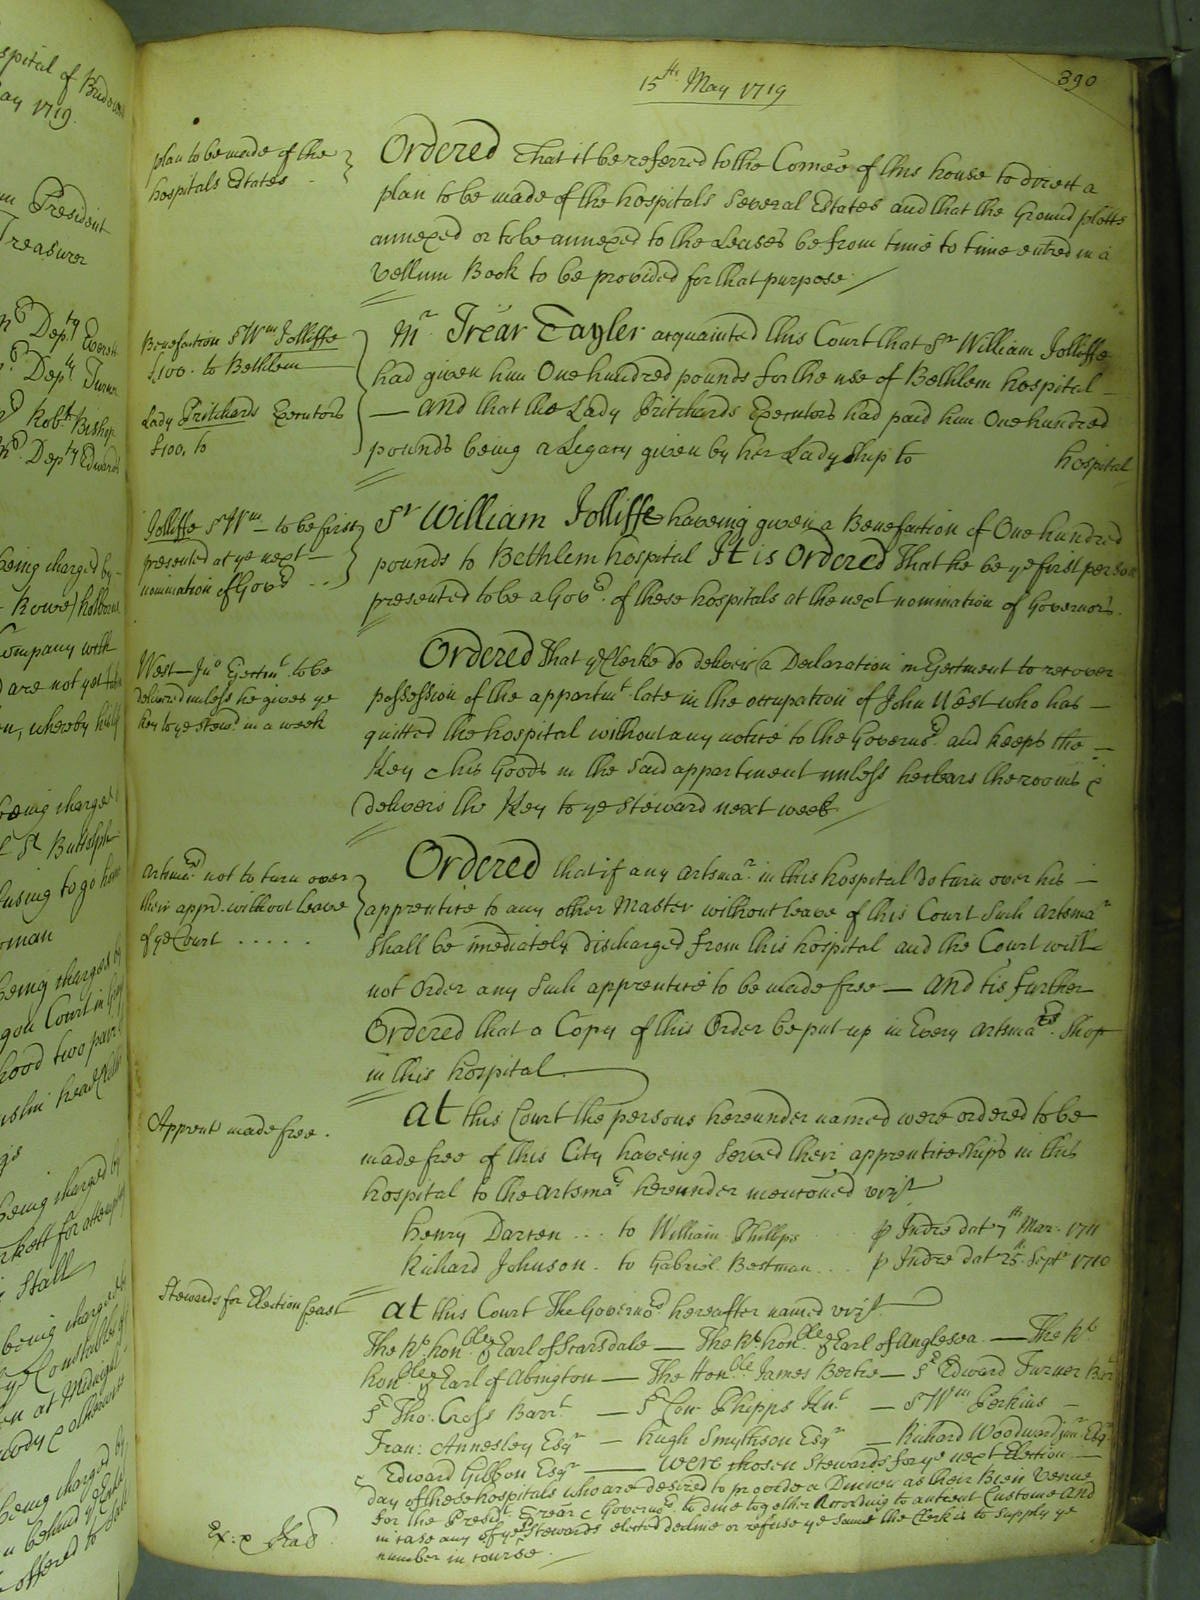 spital of Bridew
ay 1719.
President
Treasurer
Depty Everett
Depty Turner
Robt Bishop
Depty Edwards
being charged by
Rowe) holborne
Company with
d are not yet
whereby
being charged
St Buttolph
fusing to go home
woman
being charged by
hood two pair
muslin head
being charged by
for attempt
Stall
being charged
ye Constable
at Midnight
being charged by
behind ye
offered to
15th May 1719
390
plan to be made of the
hospitals Estates
Ordered That it be referred to the Comee of this house to direct a
plan to be made of the hospitals Several Estates and that the Ground plotts
annexed or to be annexed to the Leases be from time to time entred in a
Vellum Book to be provided for that purpose
Benefaction Sr Wm Jolliffe
£100. to Bethlem
Lady Pritchards Executors
£100, to
Mr Trear Tayler acquainted this Court that Sr William Jolliffe
had given him One hundred pounds for the use of Bethlem hospital
— And that the Lady Pritchards Executors had paid him One hundred
pounds being a Legacy given by her Ladyship to hospital
Jolliffe Sr Wm to be first
presented at ye next
nomination of Govrs
Sr William Jolliffe haveing given a Benefaction of One hundred
pounds to Bethlem hospital It is Ordered That he be ye first person
presented to be a Govr. of these hospitals at the next nomination of Governors.
West — Jno Ejectmt. to be
delivered unless he gives ye
key to ye Stewd in a week
Ordered That ye Clerke do deliver a Declaration in Ejectment to recover
possession of the appartmt late in the occupation of John West who has —
quitted the hospital without any notice to the Governrs. and keeps the —
Key & his Goods in the said appartment unless he clears the rooms &
delivers the Key to ye Steward next week
Artsmars not to turn over
their appr. without leave
of ye Court . . . . .
Ordered that if any artsmar. in this hospital do turn over his —
apprentice to any other Master without leave of this Court Such Artsmar
Shall be imediately discharged from this hospital and the Court will
not Order any such apprentice to be made free — And tis further
Ordered that a Copy of this Order be put up in Every artsmars. Shop
in this hospital
Apprents made free.
At this Court the persons hereunder named were ordered to be
made free of this City haveing Served their apprenticeships in this
hospital to the artsmars hereunder mentoned vizt
Henry Darren ... to William Phillips p Indre dat 7th Mar. 1711
Richard Johnson . to Gabriel Bestman ... p Indre dat 25th. Septr 1710
Stewards for Election feast
At this Court The Governors hereafter named vizt
The Rt. honble ye Earl of Scarsdale — The Rt honble ye Earl of Anglesea — The Rt
honble ye Earl of Abington — The Honble James Bertie — Sr Edward Turner Bart
Sr Tho: Cross Barrt — Sr Con Phipps Knt — Sr Wm Perkins —
Fran: Annesley Esqr — Hugh Smythson Esqr — Richard Woodward junr. Esqr
& Edward Gibbon Esqr — were chosen Stewards for ye next Election —
day of these hospitals who are desired to provide a Dinner as their Bien Venue
for the Presidt Trear & Governrs. to dine together According to antient Custome And
in case any of ye Stewards elected decline or refuse ye same the Clerk is to supply ye
number in course.
Ex: p